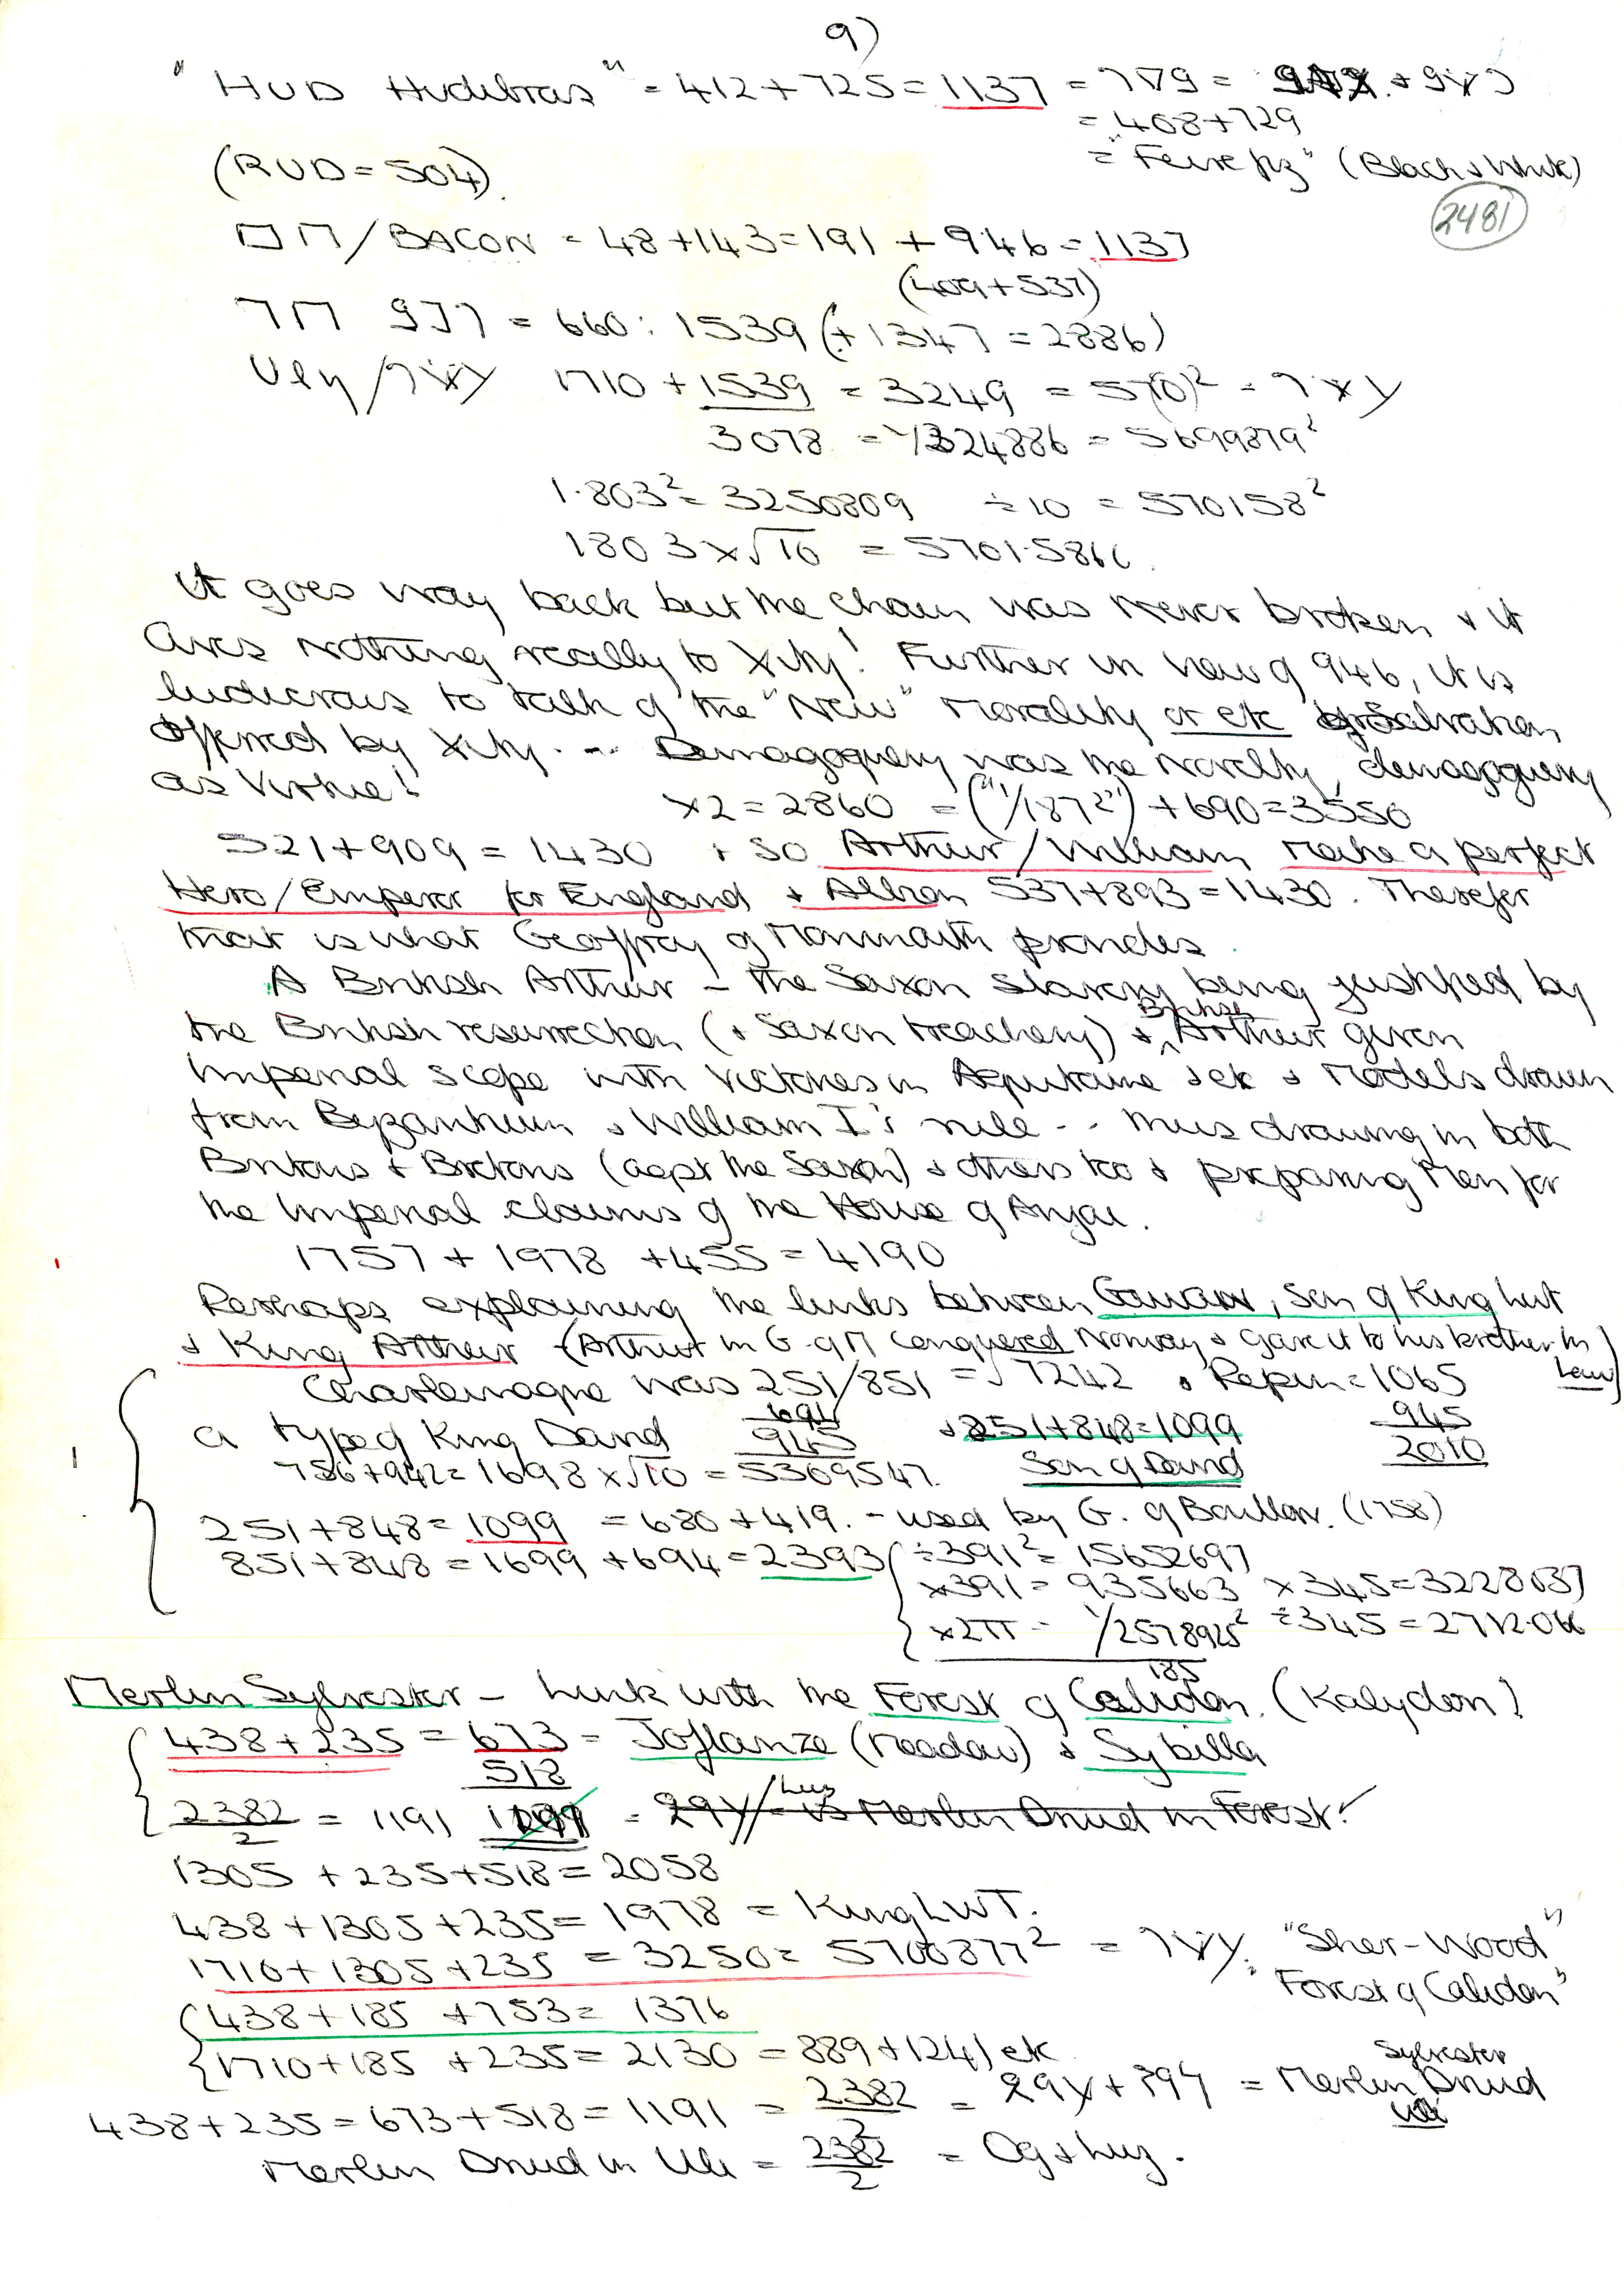 9)
"HUD Hudibras" = 412+725=1137 = 779 =
= 408+729
(RUD=504)
= "Feirefiz" (Black & White)
2481
/BACON = 48+143=191 + 946=1137
(409+537)
= 660: 1539 (+1347=2886)
1710+1539 = 3249 = 57(0)²
3078 = 5699879²
1.803²= 3250809 ÷10 = 570158²
1803 x√10 = 5701.5866
It goes way back but the chain was never broken & it
owes nothing really to Xity! Further in view of 946, it is
ludicrous to talk of the "New" morality or etc salvation
offered by Xity... Demagoguery was the novelty, demagoguery
as Virtue!
x2=2860 = ("1/1872") +690=3550
521+909=1430 & so Arthur/William make a perfect
Hero/Emperor for England & Albion 537+893=1430. Therefor
that is what Geoffrey of Monmouth provides.
A British Arthur - the Saxon slavery being justified by
the British resurrection (& Saxon treachery) & British Arthur given
Imperial scope with victories in Aquitaine & etc & models drawn
from Byzantium & William I's rule .. thus drawing in both
Britons & Bretons (aqst the Saxon) & others too & preparing men for
the Imperial claims of the House of Anjou.
1757 + 1978 +455=4190
Perhaps explaining the links between Gawain, Son of King Lut
& King Arthur (Arthur in G. of M conquered Norway & gave it to his brother in
Law)
Charlemagne was 251/851 =√7242 & Pepin=1065
694 945
a type of King David 945 & 251+848=1099 2010
756+942=1698 x√10=5369547. Son of David
251+848=1099 =680+419. - used by G. of Bouillon. (1758)
851+848=1699 +694=2393 ÷391²= 15652697
x391= 935663 x345=3228037
x2π = 1/2578925² ÷345=2712.066
185
Merlin Sylvester - Link with the Forest of Calidon. (Kalydon)
438+235=673 = Joflanze (Meadow) & Sybilla
518
2382/2 = 1191 = Merlin Druid in Forest!
1305 +235+518=2058
438+1305+235=1978 = King LWT.
1710+1305+235 = 3250= 5700877² = "Sher-Wood"
"Forest of Calidon"
438+185 +753= 1376
1710+185 +235=2130 =889+1241 etc
Sylvester
438+235=673+518=1191 = 2382/2 = = Merlin Druid
Merlin Druid in = 2382/2 = Og & Lug.